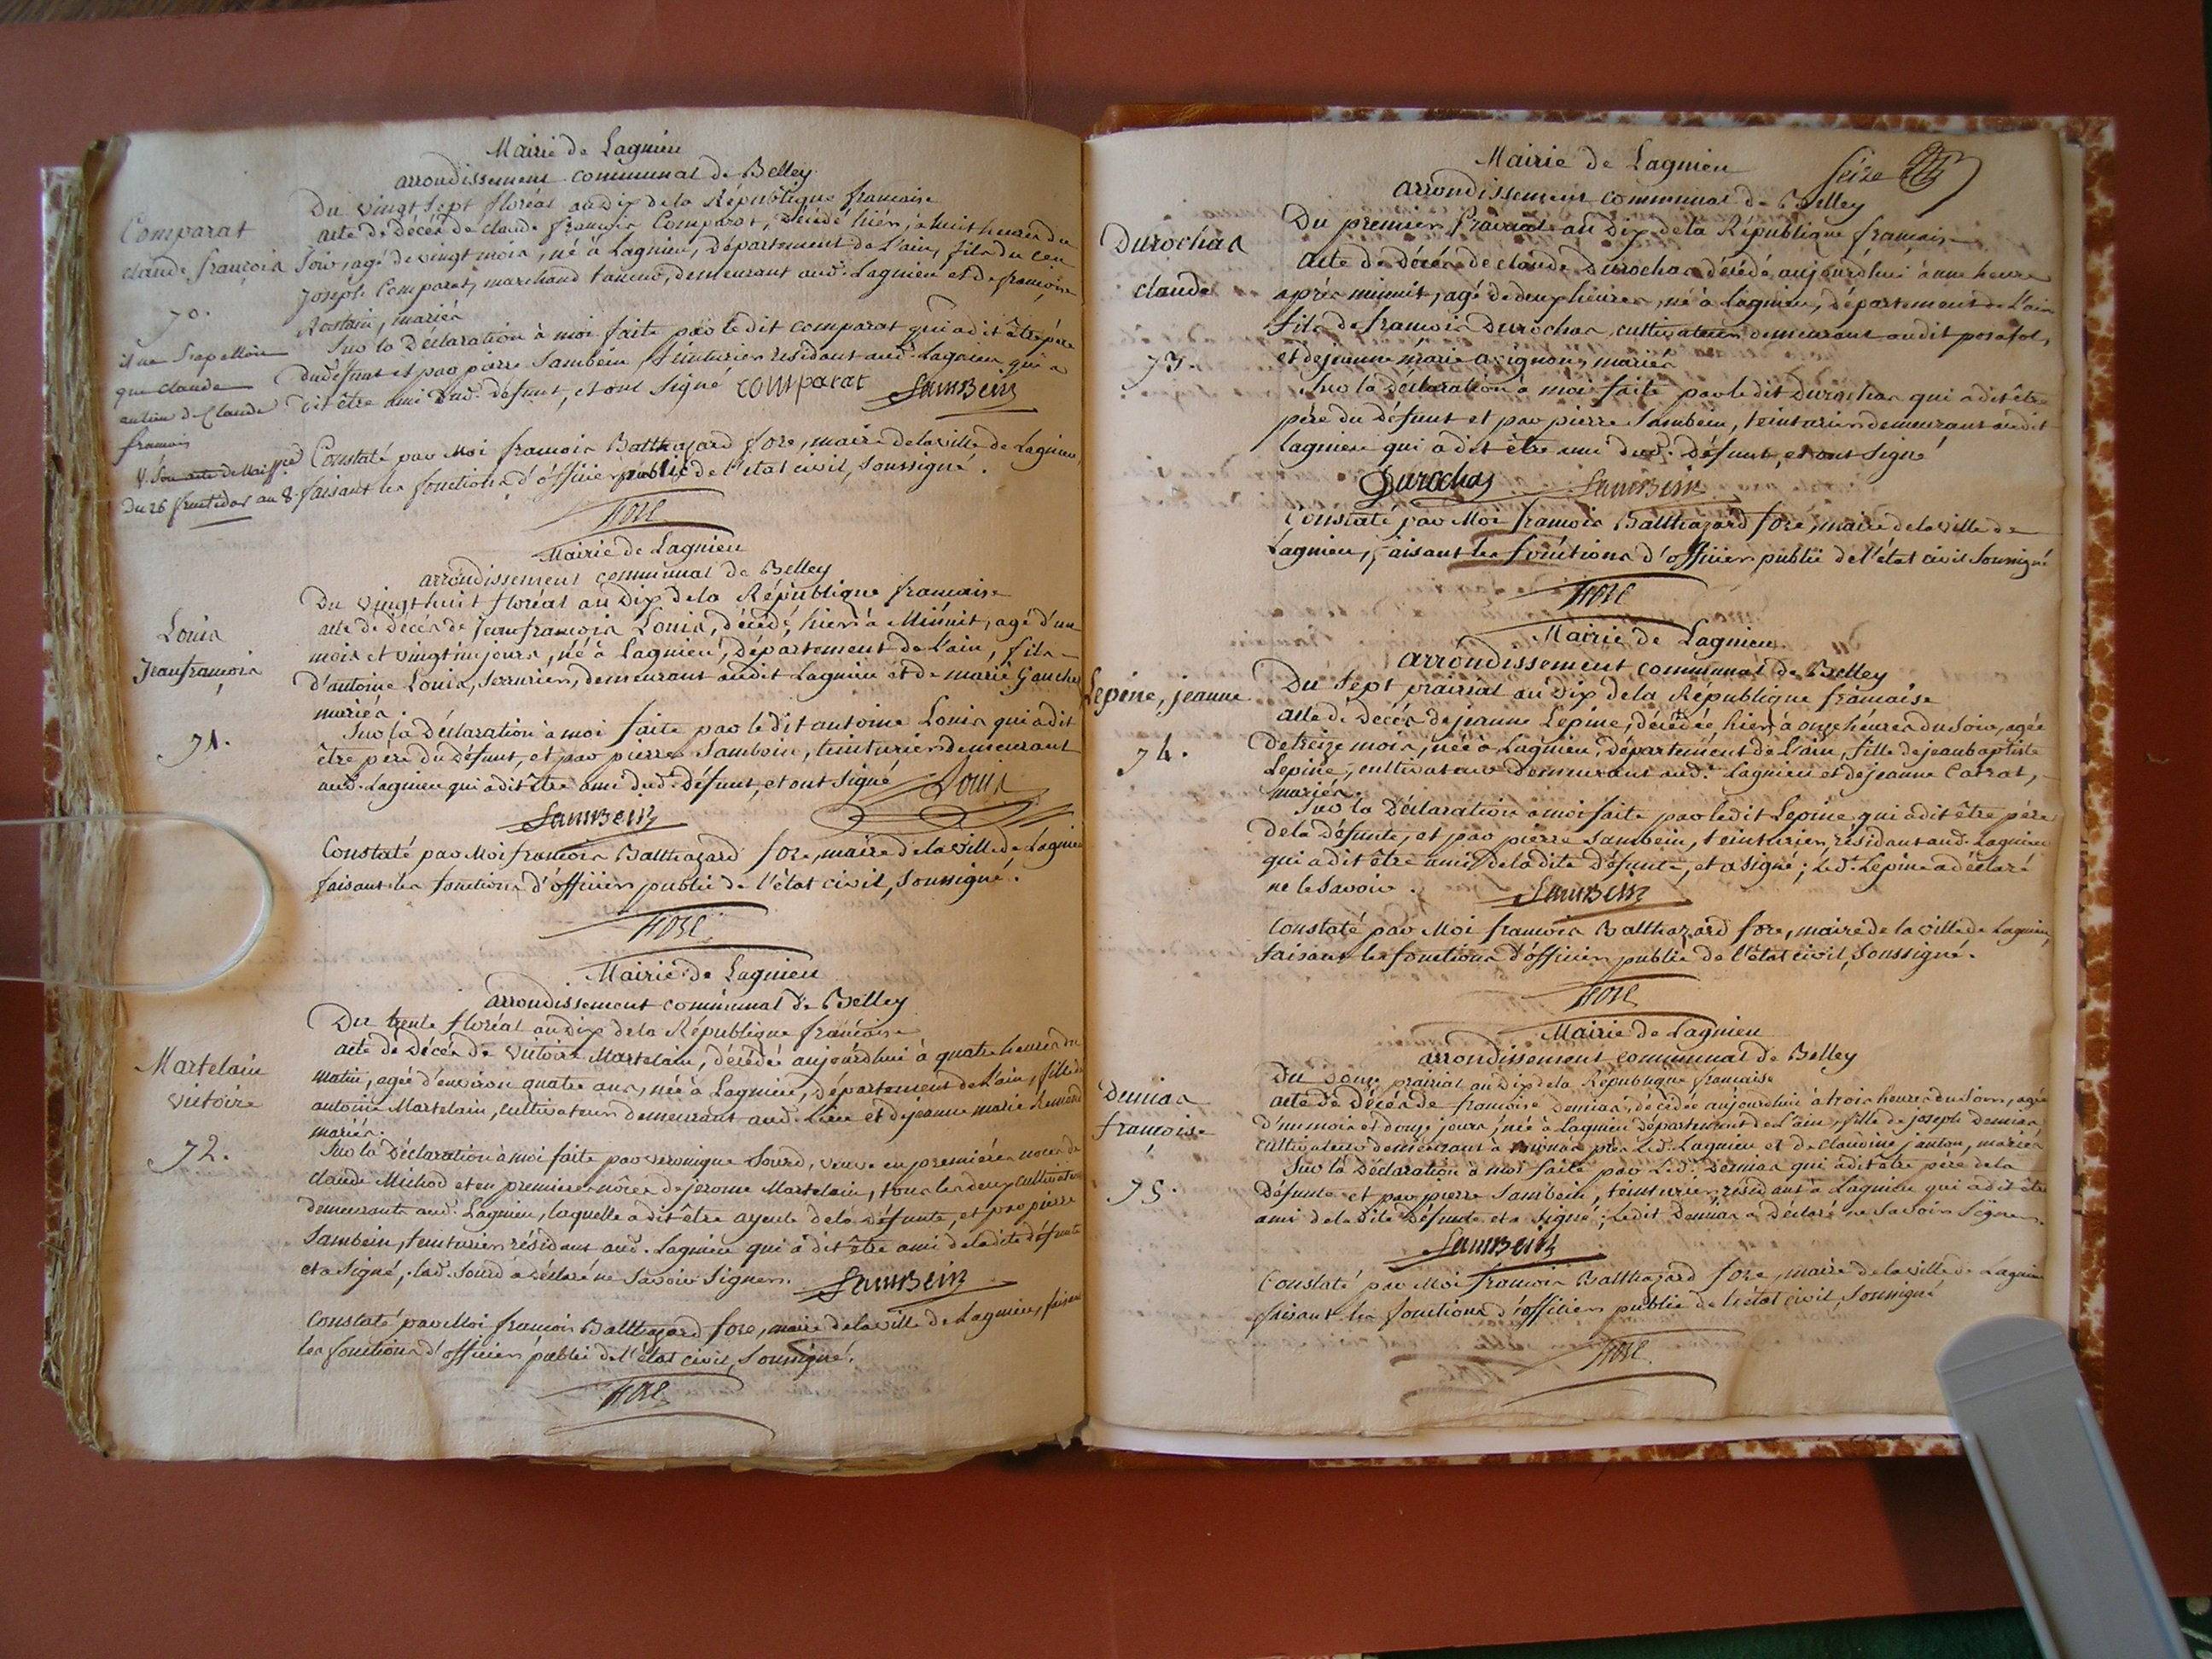 Mairie de Lagnieu
arrondissement communal de Belley
Du vingt sept floréal an dix de la République francaise
Comparat
claude françois
70.
il ne s'apelloit
que claude
au lieu de Claude
francois
V. Son acte de Naissce
du 26 fructidor an 8.
acte de Décés de claude francois Comparat, décédé hier, à huit heures du
soir, agé de vingt mois, né à Lagnieu, Département de L'ain, fils du
Joseph Comparat, marchand taneur, demeurant aud. Lagnieu et de francoise
Rostain, mariés
Sur la Déclaration à moi faite par ledit comparat qui a dit être père
du défunt et par pierre Sambein teinturier residant aud. Lagnieu qui a
dit être ami dud. défunt, et ont signé comparat Sambein
Constaté par Moi francois Balthazard fore, maire de la ville de Lagnieu,
faisant les fonctions d'officier public de l'etat civil, soussigné.
fore
Mairie de Lagnieu
arrondissement communal de Belley
Du vingt huit floréal an Dix de la République francaise
Louis
Jean francois
71.
acte de décés de Jean francois Louis, décédé, hier à Minuit, agé d'un
mois et vingt un jours, né à Lagnieu, département de l'ain, fils
d'antoine Louis, serrurier, demeurant audit Lagnieu et de marie Gaucher
mariés.
Sur la Déclaration à moi faite par ledit antoine Louis qui a dit
être père du défunt, et par pierre Sambein, teinturier demeurant
aud. Lagnieu qui a dit être ami dud. défunt, et ont signé Louis
Sambein
Constaté par Moi francois Balthazard fore, maire de la ville de Lagnieu
faisant les fonctions d'officier public de l'état civil, soussigné.
fore
Mairie de Lagnieu
arrondissement communal de Belley
Du trente floréal an dix de la République francaise
Martelain
victoire
72.
acte de décés de victoire Martelain, décédée aujourdhui à quatre heures du
matin, agée d'environ quatre ans, née à Lagnieu, département de L'ain, fille d'
antoine Martelain, cultivateur demeurant aud. Lieu et de jeanne marie
mariés.
Sur la Déclaration à moi faite par veronique Sourd, veuve en premières noces de
claude Michod et en premieres nôces de jerome Martelain, tous les deux cultivateurs
demeurants aud. Lagnieu, laquelle a dit être ayeule de la défunte, et par pierre
Sambein, teinturier résidant aud. Lagnieu qui a dit être ami de la dite défunte
et a signé, lad. Sourd a déclaré ne savoir signer. Sambein
Constaté par Moi francois Balthazard fore, maire de la ville de Lagnieu, faisant
les fonctions d'officier public de l'état civil, soussigné.
fore
Seize
Mairie de Lagnieu
arrondissement communal de Belley
Du premier Prairial an Dix de la République francaise
Durochas
claude
73.
acte de décés de claude Durochas décédé aujourd'hui à une heure
après minuit, agé de deux heures, né à Lagnieu, département de L'ain
fils de francois Durochas, cultivateur demeurant audit posafol,
et de jeanne marie avignon, mariés
Sur la déclaration à moi faite par ledit Durochas qui a dit être
père du défunt et par pierre Sambein, teinturier demeurant audit
Lagnieu qui a dit être ami dud. défunt, et ont signé
Durochas Sambein
Constaté par Moi francois Balthazard fore, maire de la ville de
Lagnieu, faisant les fonctions d'officier public de l'état civil soussigné
fore
Mairie de Lagnieu
arrondissement communal de Belley
Du sept prairial an dix de la République francaise
Lepine, jeanne
74.
acte de décés de jeanne Lepine, décédée hier à onze heures du soir, agée
de treize mois, née à Lagnieu, département de L'ain, fille de jean baptiste
Lepine, cultivateur demeurant aud. Lagnieu et de jeanne Carrat,
mariés.
Sur la Déclaration à moi faite par ledit Lepine qui a dit être père
de la défunte, et par pierre Sambein, teinturier, résidant aud. Lagnieu
qui a dit être ami de la dite défunte, et a signé; led. Lepine a déclaré
ne le savoir. Sambein
Constaté par Moi francois Balthazard fore, maire de la ville de Lagnieu,
faisant les fonctions d'officier public de l'état civil, soussigné.
fore
Mairie de Lagnieu
arrondissement communal de Belley
Du douze prairial an Dix de la République francaise
Demias
francoise
75.
acte de Décés de francoise Demias, décédée aujourdhui à trois heures du soir, agée
d'un mois et douze jours, née à Lagnieu département de L'ain, fille de joseph Demias
cultivateur demeurant à près led. Lagnieu et de claudine janton, mariés
Sur la déclaration à moi faite par led. Demias qui a dit être père de la
défunte et par pierre Sambein, teinturier, residant à Lagnieu qui a dit être
ami de la dite défunte et a signé; ledit Demias a déclaré ne savoir signer.
Sambein
Constaté par Moi francois Balthazard fore, maire de la ville de Lagnieu
faisant les fonctions d'officier public de l'état civil, soussigné
fore